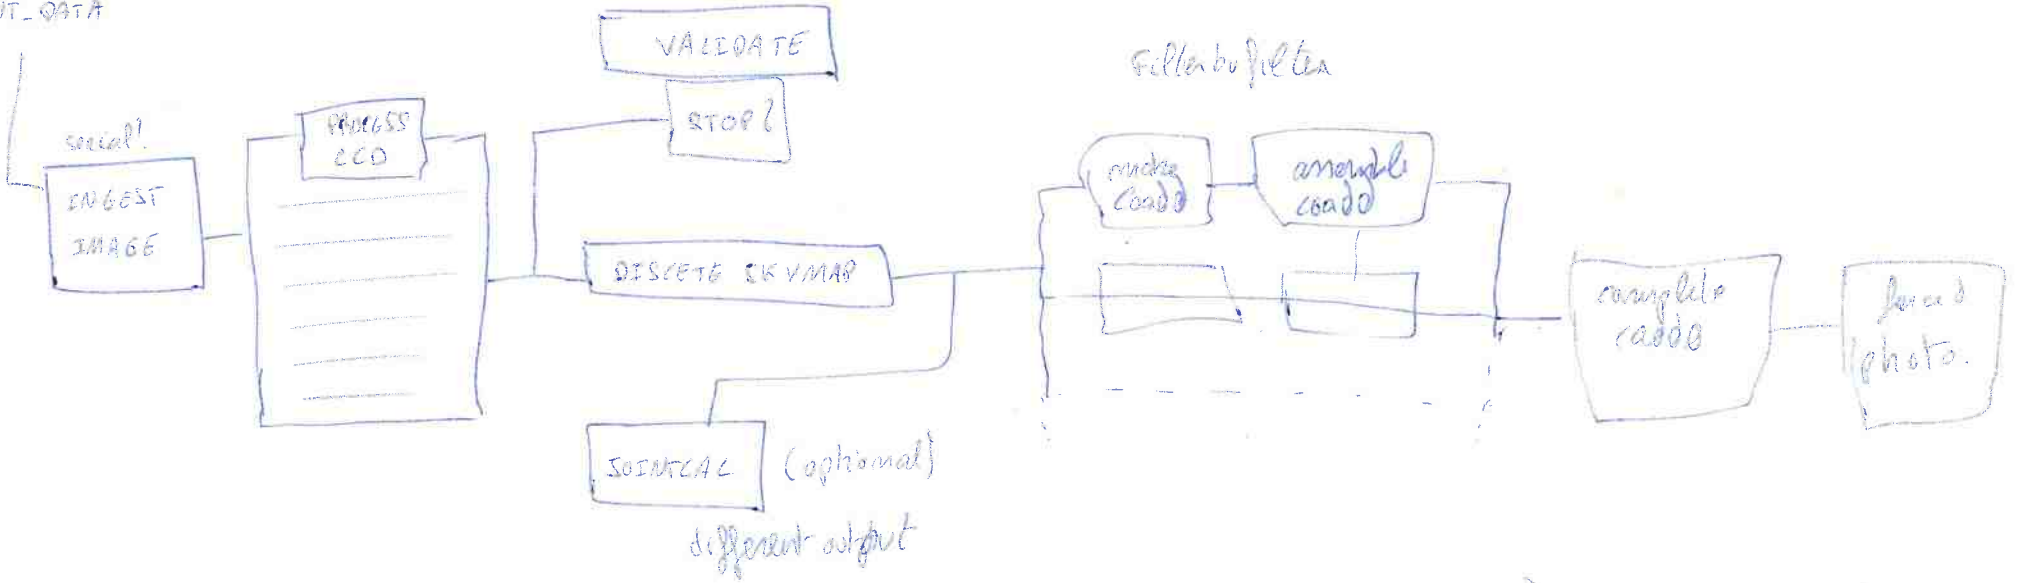 T_DATA
serial?
INGEST
IMAGE
PROCESS
CCD
VALIDATE
STOP?
DISCETE SKYMAP
JOINTCAL (optional)
different output
Filter by filter
coadd
assemble
coadd
coadd
forced
photo.